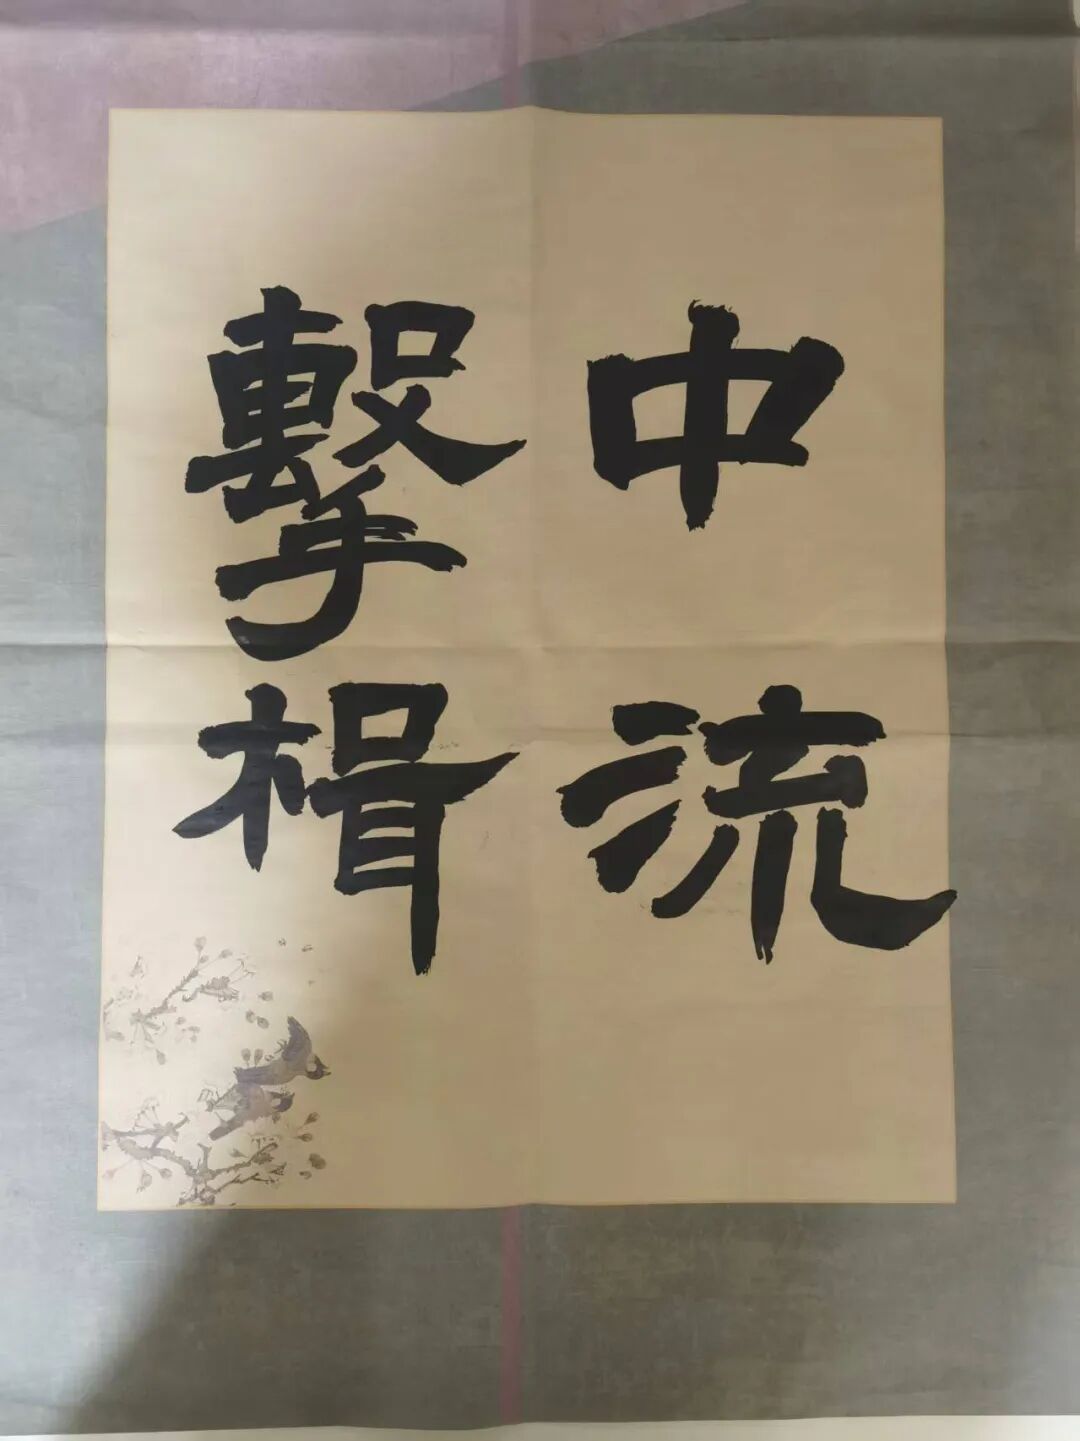 中流
擊楫